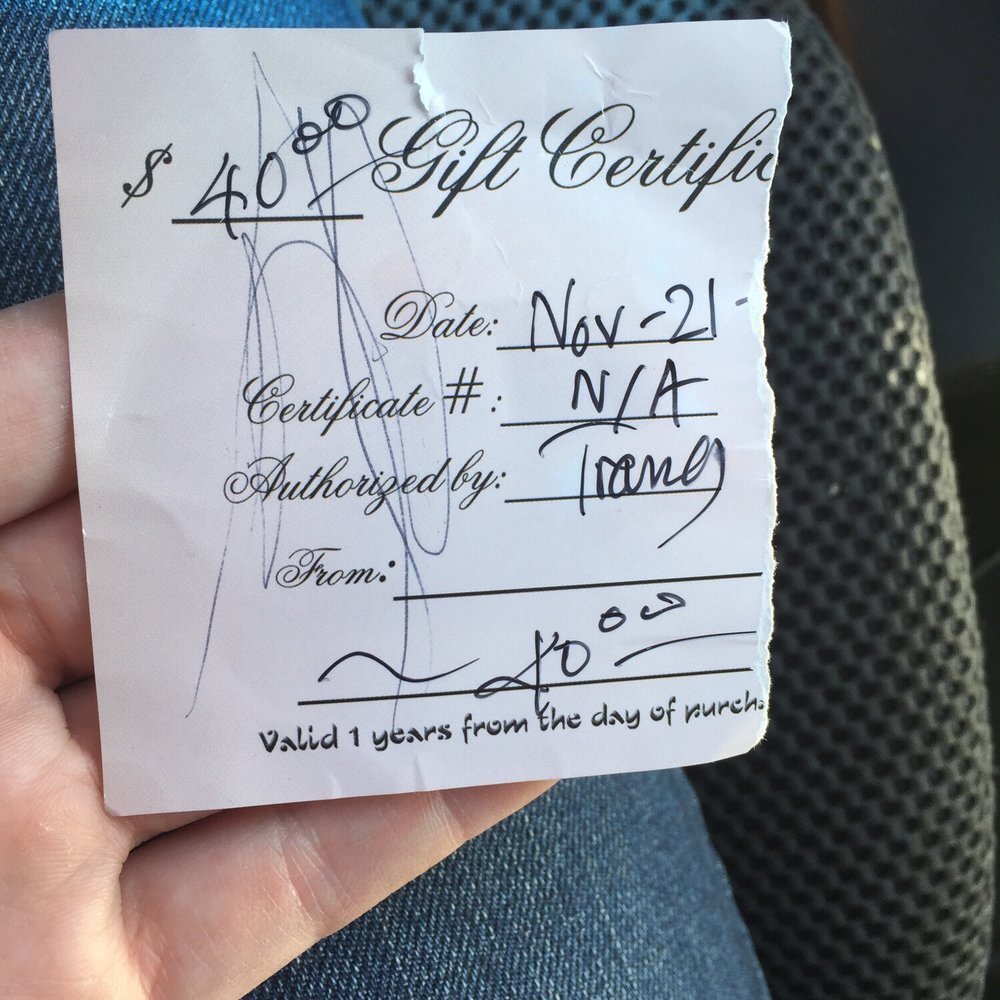 $ 40⁰⁰ Gift Certific
Date: Nov-21-
Certificate #: N/A
Authorized by: Trang
From:
~ 40⁰⁰ —
Valid 1 years from the day of purch